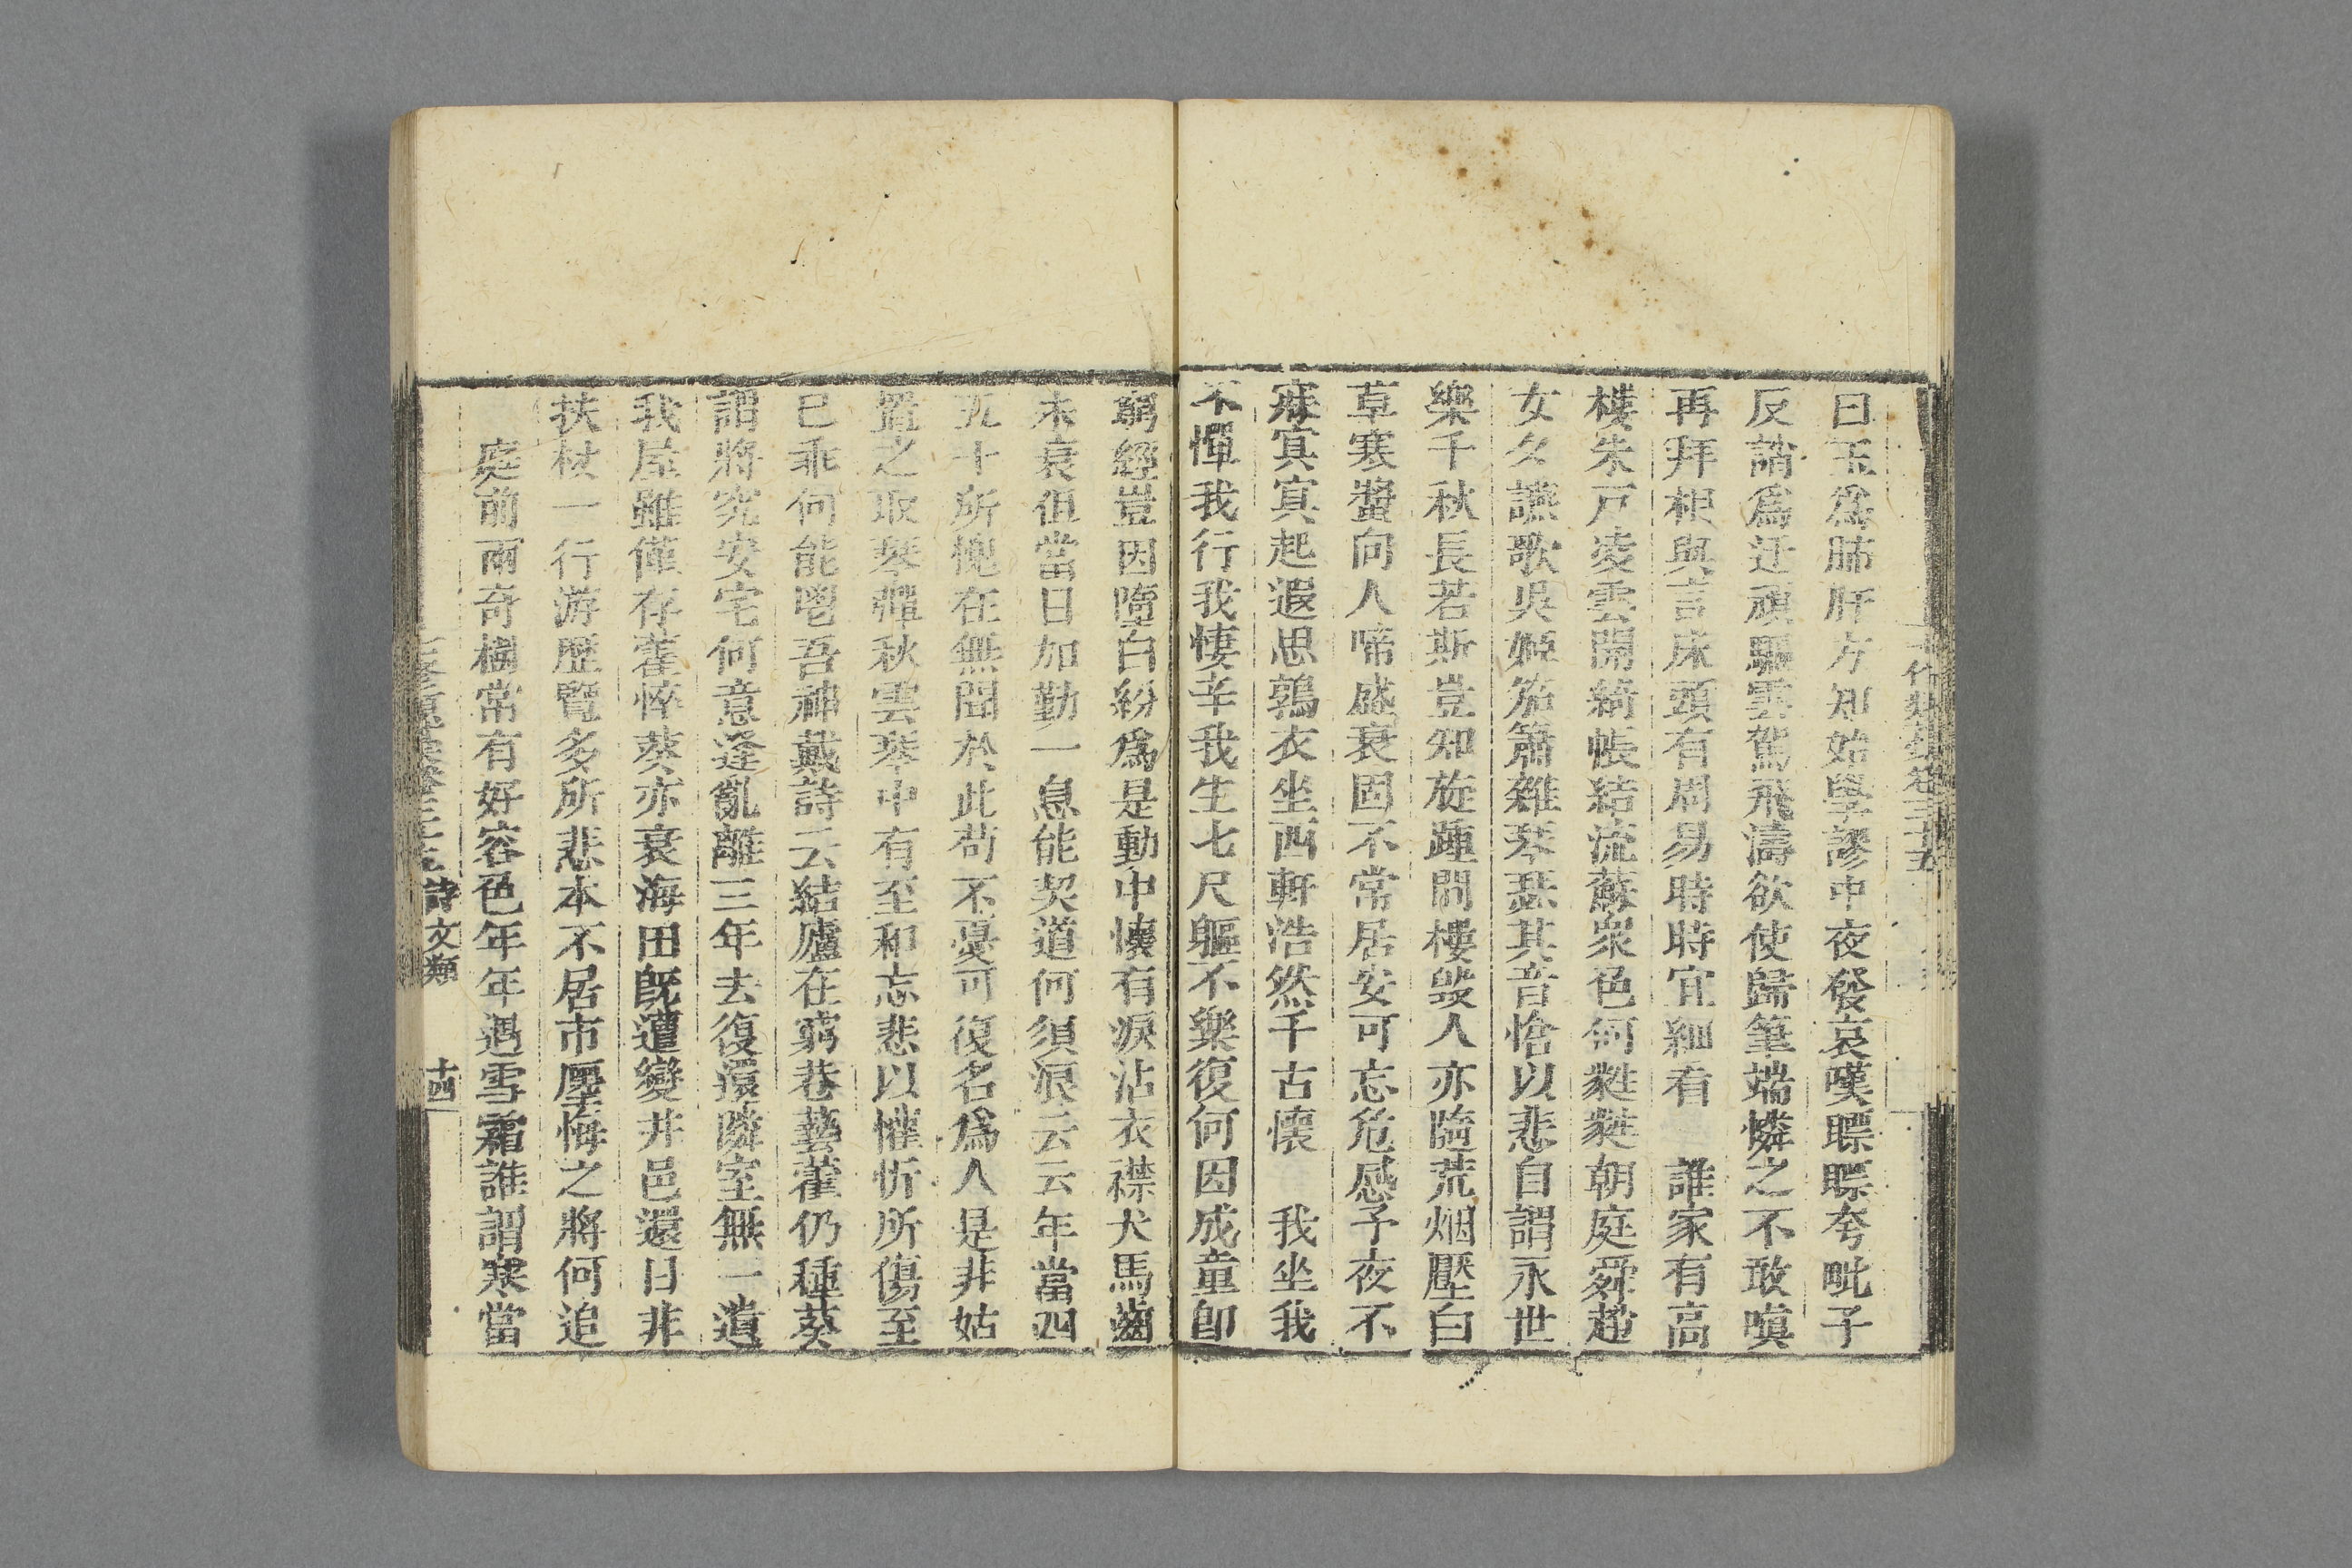 曰玉為肺肝方知始學謬中夜發哀嘆瞟瞟夸毗子
反誚為迂頑驅雲駕飛濤欲使歸筆端憐之不敢嗔
再拜相與言床頭有周易時時宜細看　誰家有高
樓朱戸凌雲開綺帳結流蘇衆色何㲯㲯朝庭舜趙
女夕讌歌吳姬笳簫雜琴瑟其音愴以悲自謂永世
樂千秋長若斯豈知旋踵間樓毀人亦隨荒烟壓白
草寒螿向人啼盛衰固不常居安可忘危感予夜不
寐寘寘起遐思鶉衣坐西軒浩然千古懷　我坐我
不憚我行我悽辛我生七尺軀不樂復何因成童卽
窮經豈因隨白紛為是動中懷有淚沾衣襟犬馬齒
未衰但當日加勤一息能契道何須浪云云年當四
五十所愧在無聞於此苟不憂可復名為人是非姑
置之取琴彈秋雲琴中有至和忘悲以懽忻所傷至
巳乖何能咆吾神戴詩云結廬在窮巷藝藿仍種葵
謂將究安宅何意逢亂離三年去復還隣室無一遺
我屋雖僅存藿悴葵亦衰海田旣遭變井邑還日非
扶杖一行游歷覽多所悲本不居市廛悔之將何追
庭前兩奇樹常有好容色年年遇雪霜誰謂寒當
詩文類　十四